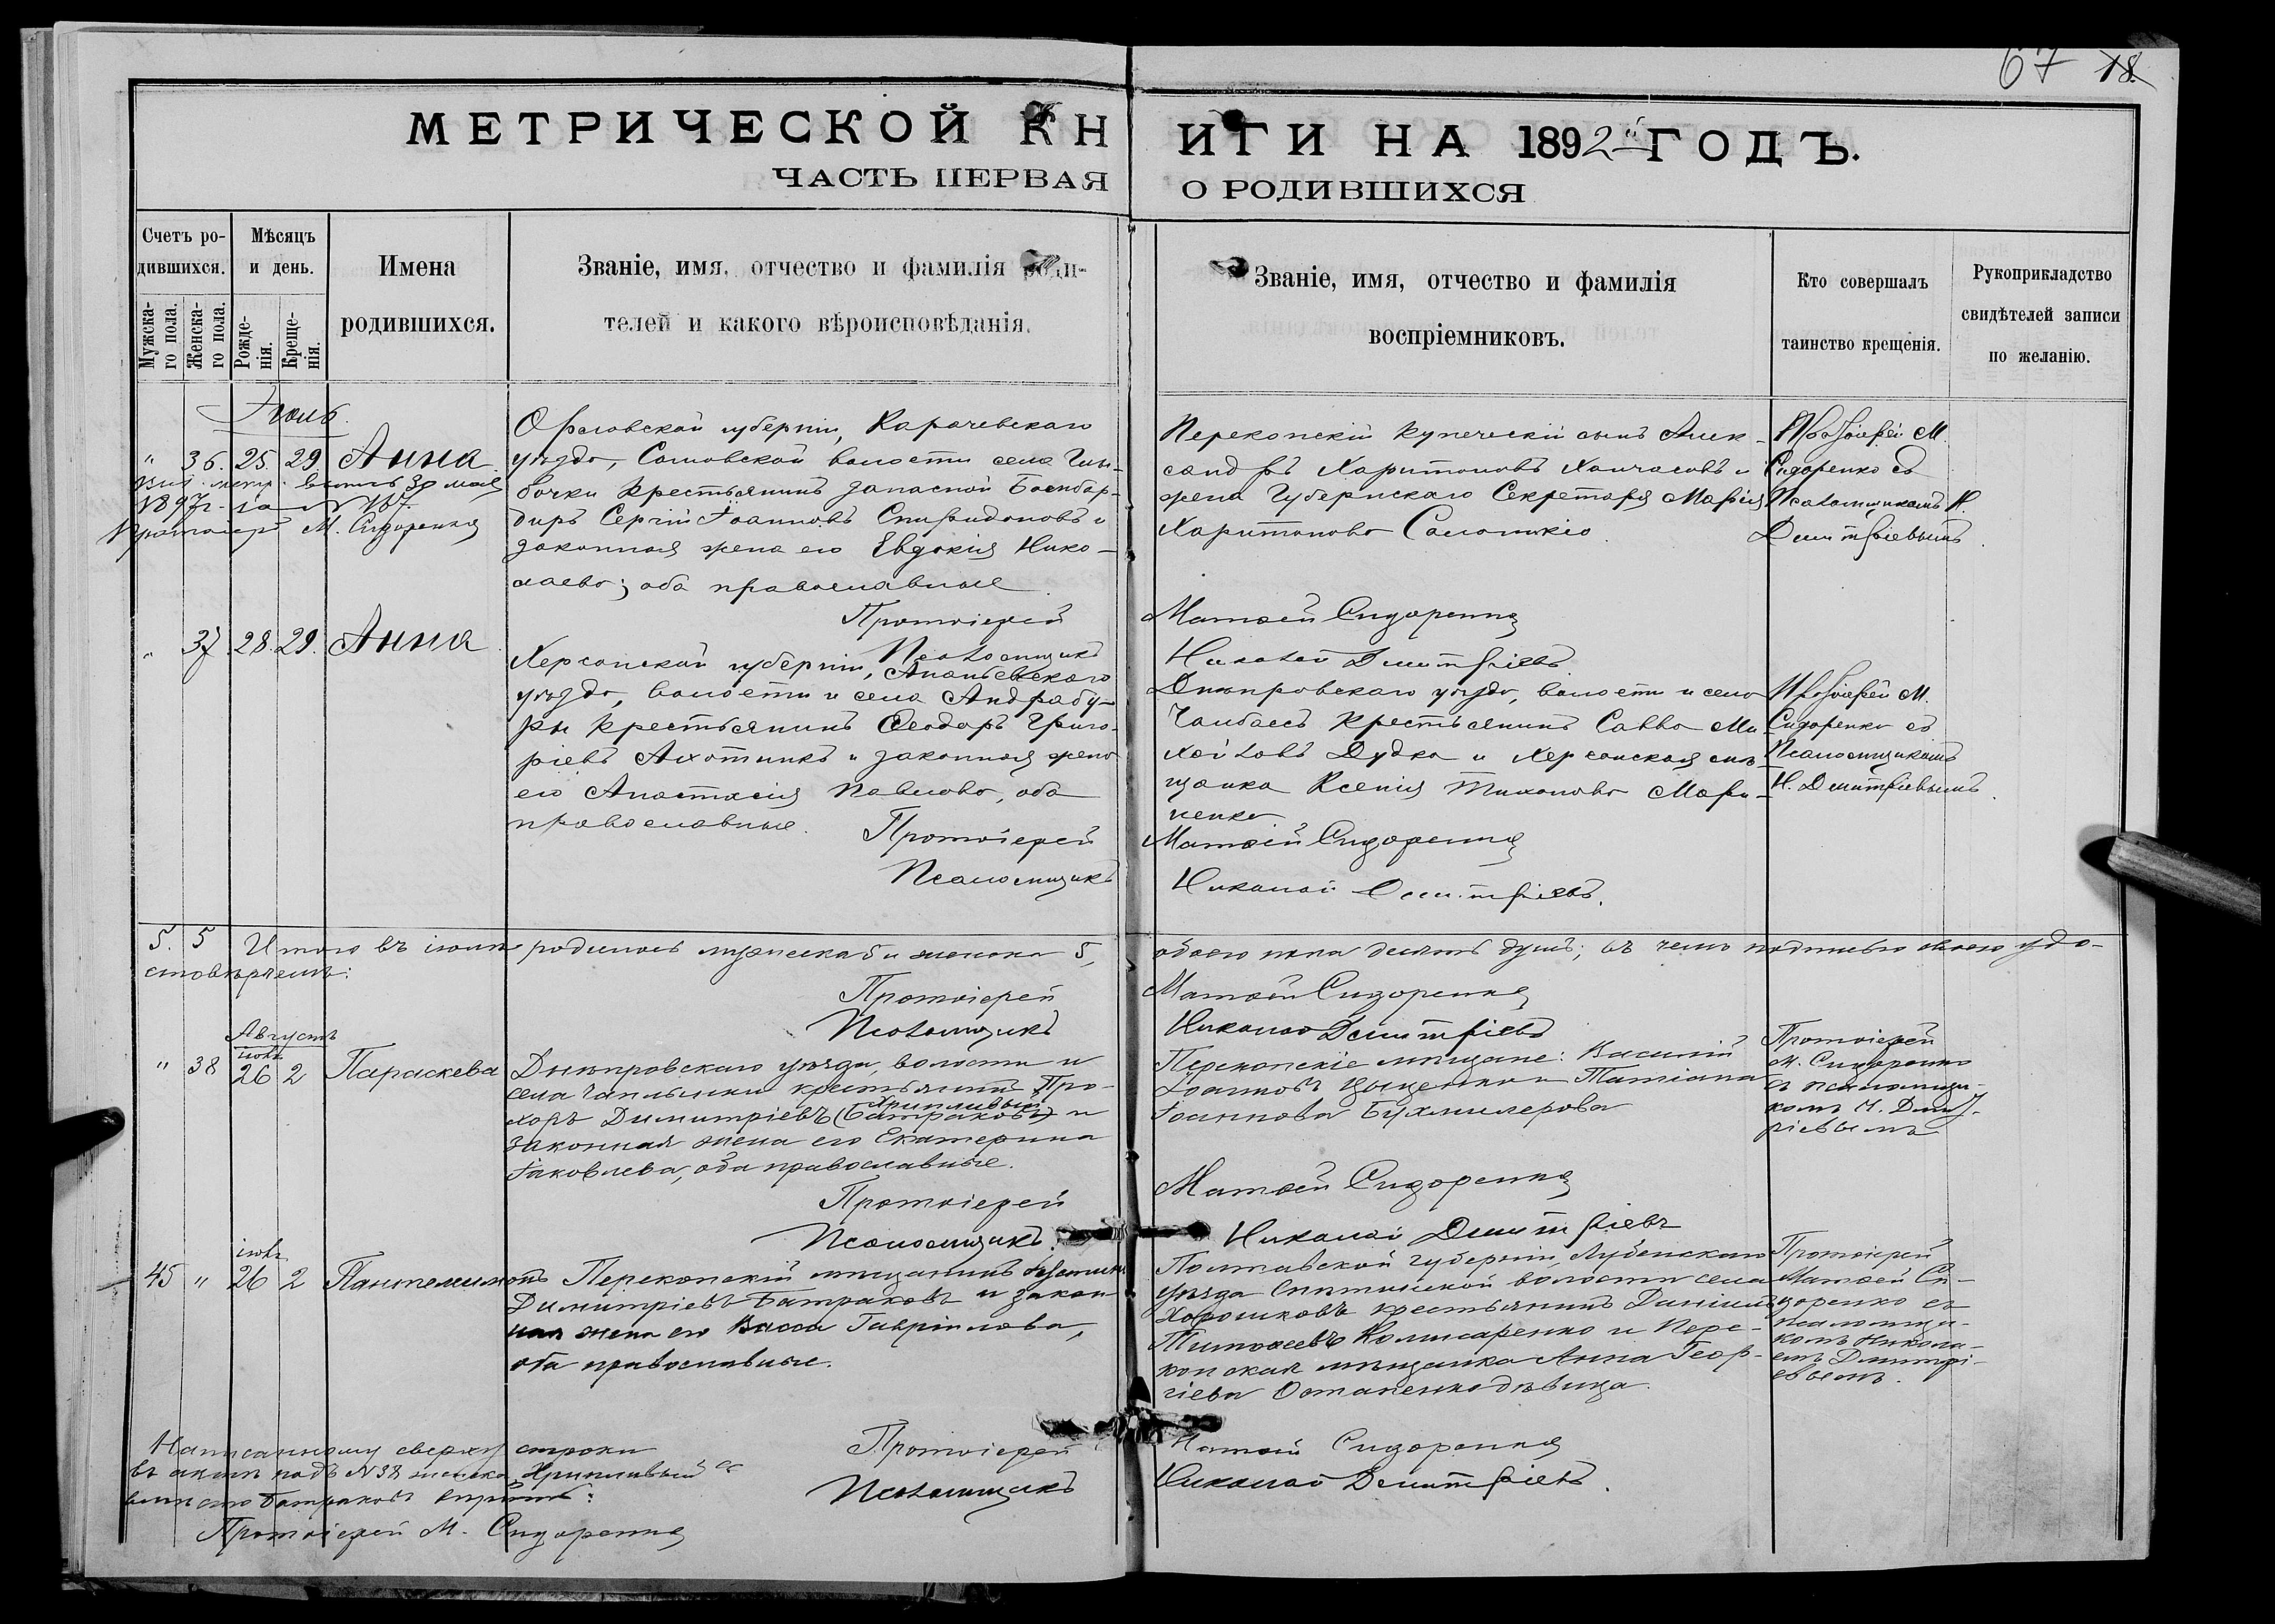 67 18.
МЕТРИЧЕСКОЙ КНИГИ НА 1892й ГОДЪ.
ЧАСТЬ ПЕРВАЯ О РОДИВШИХСЯ
Счетъ ро-
дившихся.
Мужска-
го пола.
Женска-
го пола.
Мѣсяцъ
и день.
Рожде-
нія.
Креще-
нія.
Имена
родившихся.
Званіе, имя, отчество и фамилія роди-
телей и какого вѣроисповѣданія.
Званіе, имя, отчество и фамилія
воспріемниковъ.
Кто совершалъ
таинство крещенія.
Рукоприкладство
свидѣтелей записи
по желанію.
Іюль.
" 36. 25. 29. Анна
30 мая
1897г. за №
Протоіер М. Сидоренко
Орловской губерніи, Карачевскаго
уѣзда, волости села
бочки крестьянинъ запасной Бомбар-
диръ Сергій Іоанновъ Спиридоновъ и
законная жена его Евдокія Нико-
лаева; оба православные
Протоіерей
Псаломщикъ
Перекопскій купеческій сынъ Алек-
сандръ Харитоновъ и
жена Губернскаго Секретаря Марія
Харитонова
Матѳей Сидоренко
Николай Дмитріевъ
Протоіерей М.
Сидоренко съ
Псаломщикомъ Н.
Дмитріевымъ.
" 37 28. 29. Анна
Херсонской губерніи, Ананьевскаго
уѣзда, волости и села Андрабу-
ры крестьянинъ Ѳеодоръ Григо-
ріевъ и законная жена
его Анастасія Павлова, оба
православные.
Протоіерей
Псаломщикъ
Днѣпровскаго уѣзда, волости и села
Чалбасъ крестьянинъ Савва Ми-
хайловъ Дудка и Херсонская мѣ-
щанка Ксенія Тихонова Мари-
ненко
Матѳей Сидоренко
Николай Дмитріевъ.
Протоіерей М.
Сидоренко съ
Псаломщикомъ
Н. Дмитріевымъ.
5. 5 Итого въ іюлѣ родилось мужеска 5 и женска 5, обоего пола десять душъ; въ чемъ подписью своею удо-
стовѣряемъ:
Протоіерей Матѳей Сидоренко
Псаломщикъ Николай Дмитріевъ
Августъ
іюля
" 38 26 2 Параскева
Днѣпровскаго уѣзда, волости и
села Чаплынки крестьянинъ Про-
хоръ Димитріевъ (Батраковъ) и
Хрипливый
законная жена его Екатерина
Іаковлева, оба православные.
Протоіерей
Псаломщикъ.
Перекопскіе мѣщане: Василій
Іоанновъ и Татіана
Іоаннова Бухмилерова
Матѳей Сидоренко
Николай Дмитріевъ
Протоіерей
М. Сидоренко
съ псаломщи-
комъ Н. Дмит-
ріевымъ
іюля
45 " 26 2 Пантелимонъ
Перекопскій мѣщанинъ
Димитріевъ Батраковъ и закон-
ная жена его Васса Гавріилова,
оба православные.
Полтавской губерніи, Лубенскаго
уѣзда волости села
Хорошковъ крестьянинъ Даніилъ
Тимоѳеевъ Комисаренко и Пере-
копская мѣщанка Анна Геор-
гіева Остапенко дѣвица.
Протоіерей
Матѳей Си-
доренко съ
псаломщи-
комъ Никола-
емъ Дмитрі-
евымъ.
Написанному сверху строки
въ актѣ подъ № 38 Хрипливый
вмѣсто Батраковъ вѣрить:
Протоіерей М. Сидоренко
Протоіерей Матѳей Сидоренко
Псаломщикъ Николай Дмитріевъ.